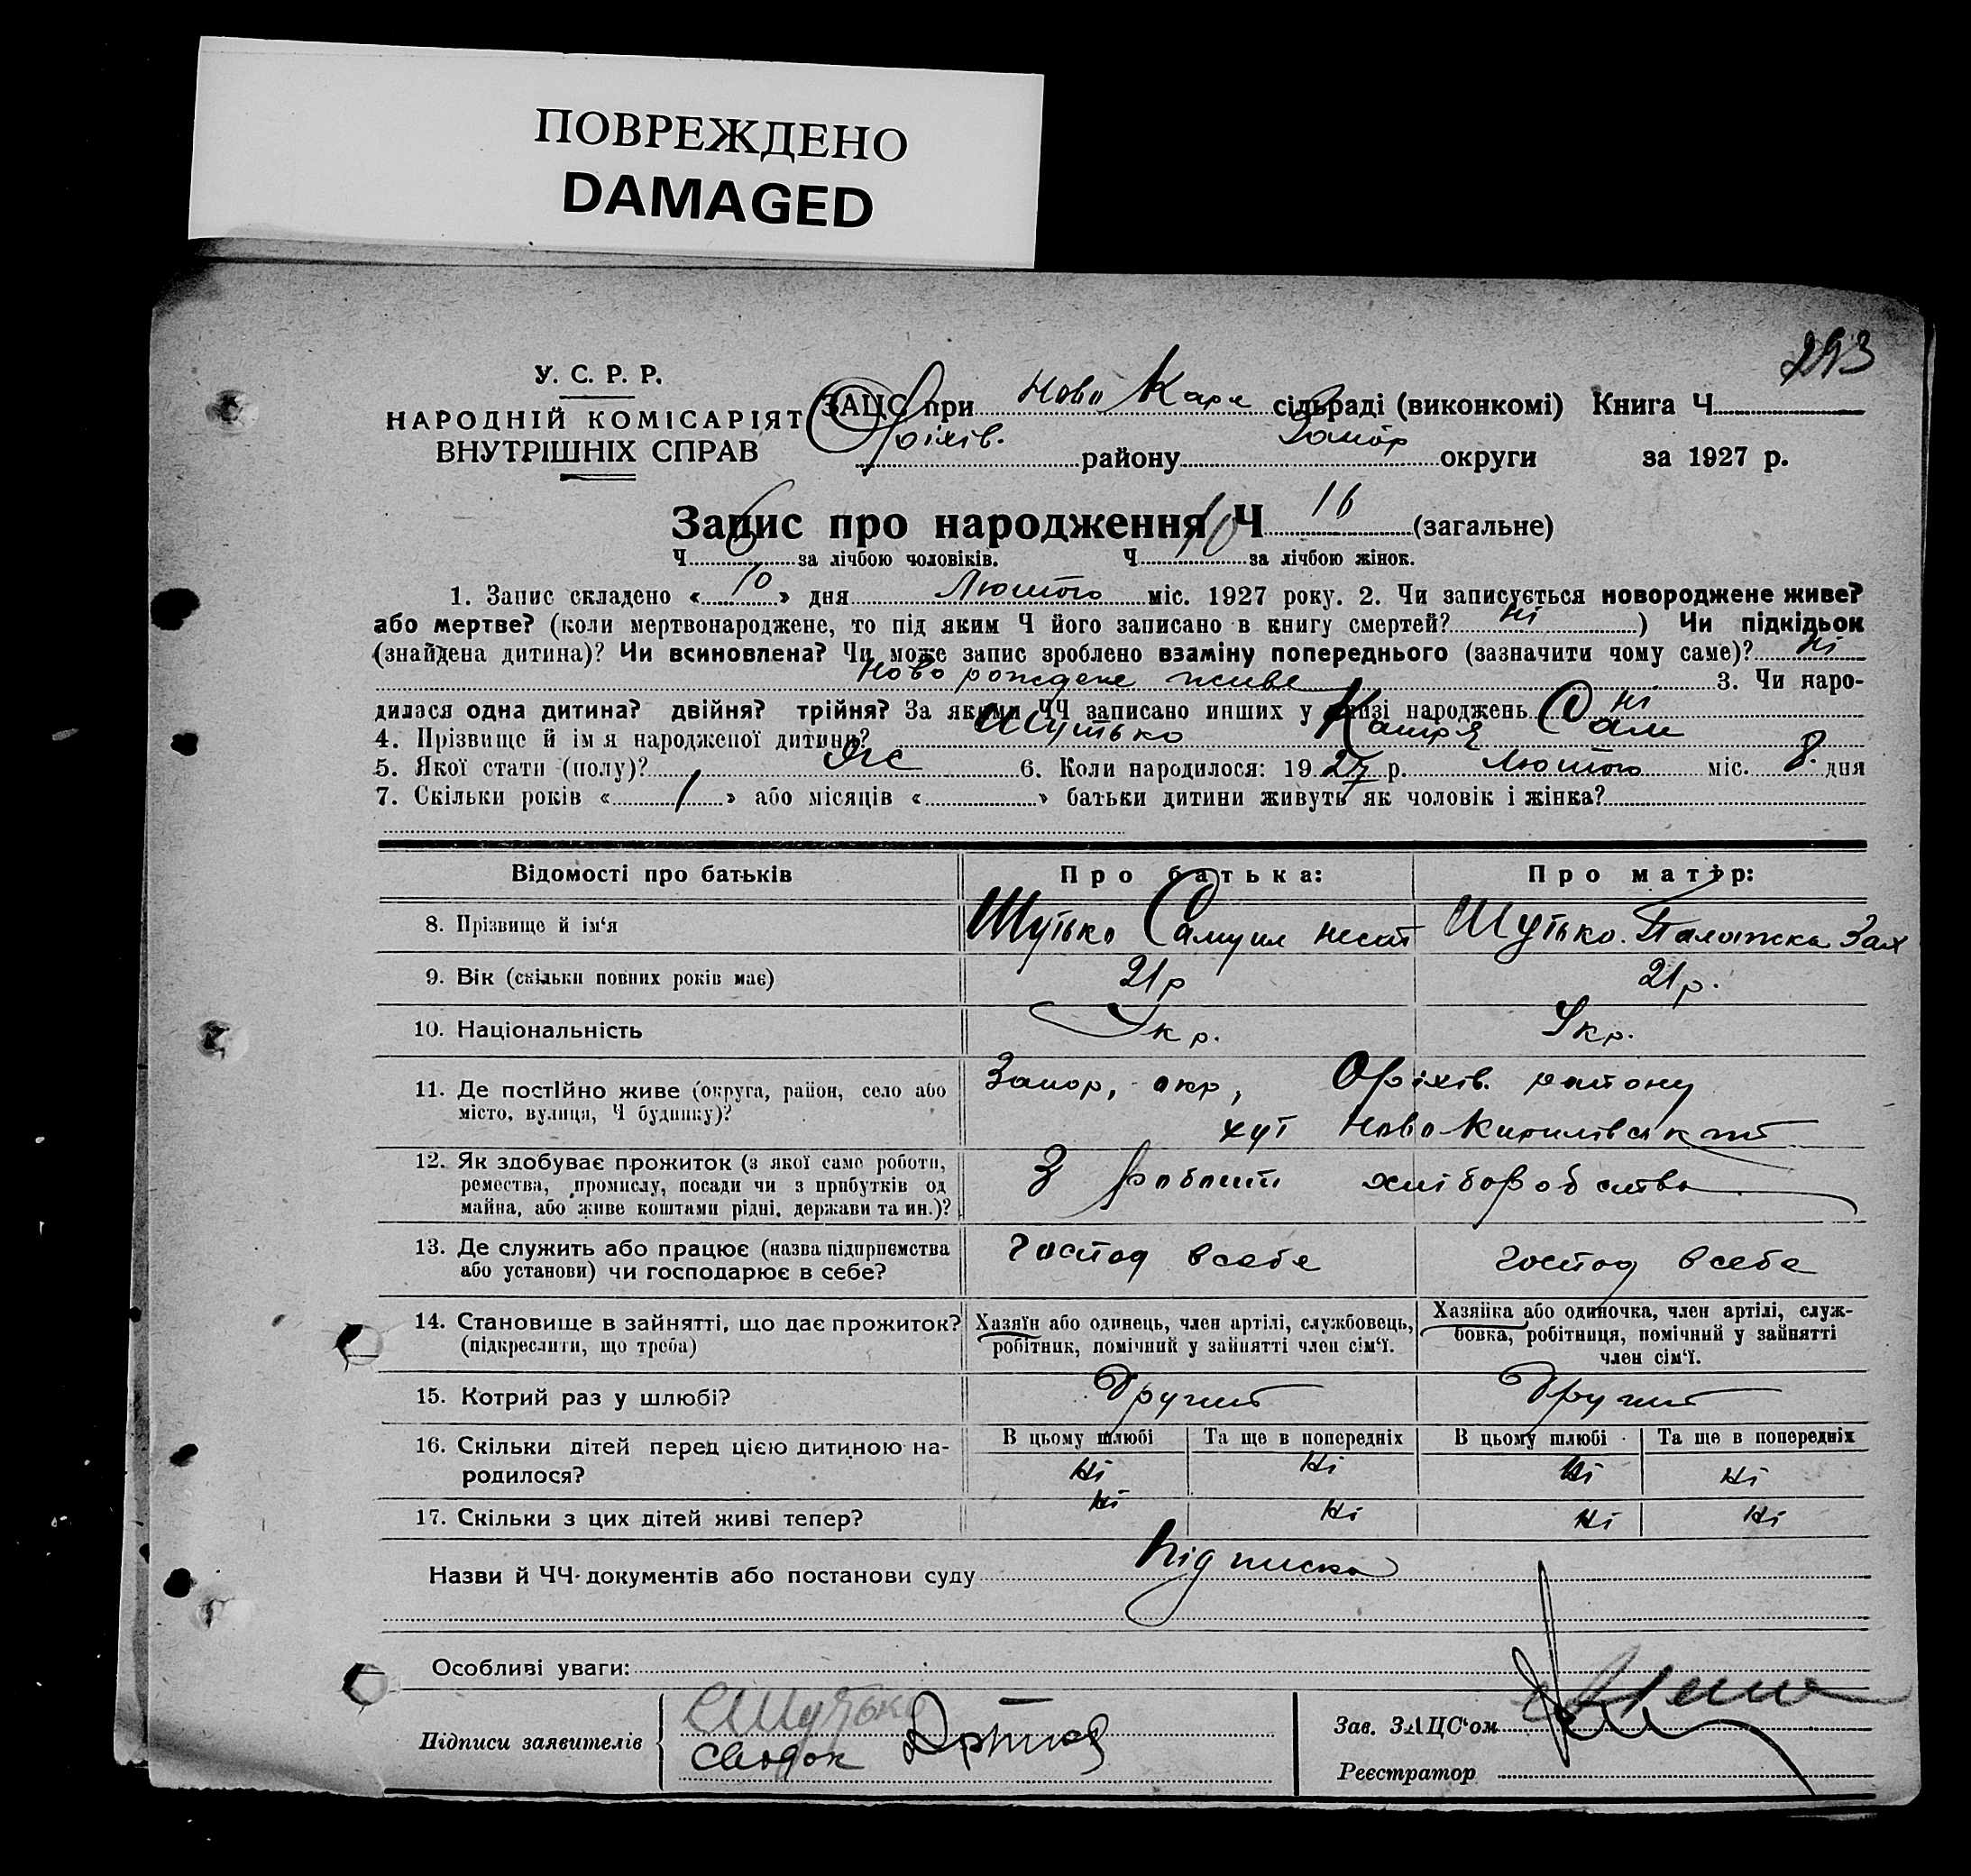 ПОВРЕЖДЕНО
DAMAGED
293
У. С. Р. Р.
НАРОДНІЙ КОМІСАРІЯТ
ВНУТРІШНІХ СПРАВ
ЗАЦС при Ново Карл сільраді (виконкомі) Книга Ч
Оріхів. району Запор округи за 1927 р.
Запис про народження Ч 16 (загальне)
Ч 6 за лічбою чоловіків. Ч 10 за лічбою жінок.
1. Запис складено « 10 » дня Лютого міс. 1927 року. 2. Чи записується новороджене живе?
або мертве? (коли мертвонароджене, то під яким Ч його записано в книгу смертей? Ні ) Чи підкідьок
(знайдена дитина)? Чи всиновлена? Чи може запис зроблено взаміну попереднього (зазначити чому саме)? Ні
Ново рождене живе 3. Чи наро-
дилася одна дитина? двійня? трійня? За якими ЧЧ записано инших у книзі народжень Ні
4. Прізвище й ім я народженої дитини? Шутько Катря Сам
5. Якої стати (полу)? Жс 6. Коли народилося: 19 27 р. Лютого міс. 8. дня
7. Скільки років « 1 » або місяців « » батьки дитини живуть як чоловік і жінка?
Відомості про батьків Про батька: Про матір:
8. Прізвище й ім‘я Шутько Самуил Шутько. Палажка Зах
9. Вік (скільки повних років має) 21 р 21 р.
10. Національність Укр. Укр.
11. Де постійно живе (округа, район, село або Запор, окр, Оріхів. району
місто, вулиця, Ч будинку)? хут Ново Кирилівський
12. Як здобуває прожиток (з якої саме роботи,
ремества, промислу, посади чи з прибутків од З роботи хліборобства
майна, або живе коштами рідні, держави та ин.)?
13. Де служить або працює (назва підприємства Господ в себе господ в себе
або установи) чи господарює в себе?
14. Становище в зайнятті, що дає прожиток? Хазяїн або одинець, член артілі, службовець, Хазяйка або одиночка, член артілі, служ-
(підкреслити, що треба) робітник, помічний у зайнятті член сім‘ї. бовка, робітниця, помічний у зайнятті
член сім‘ї.
15. Котрий раз у шлюбі? Другий Другий
16. Скільки дітей перед цією дитиною на- В цьому шлюбі Та ще в попередніх В цьому шлюбі Та ще в попередніх
родилося? Ні Ні Ні Ні
17. Скільки з цих дітей живі тепер? Ні Ні Ні Ні
Назви й ЧЧ документів або постанови суду Підписка
Особливі уваги:
Підписи заявителів Шутько
свидок
Зав. ЗАЦС‘ом
Реєстратор